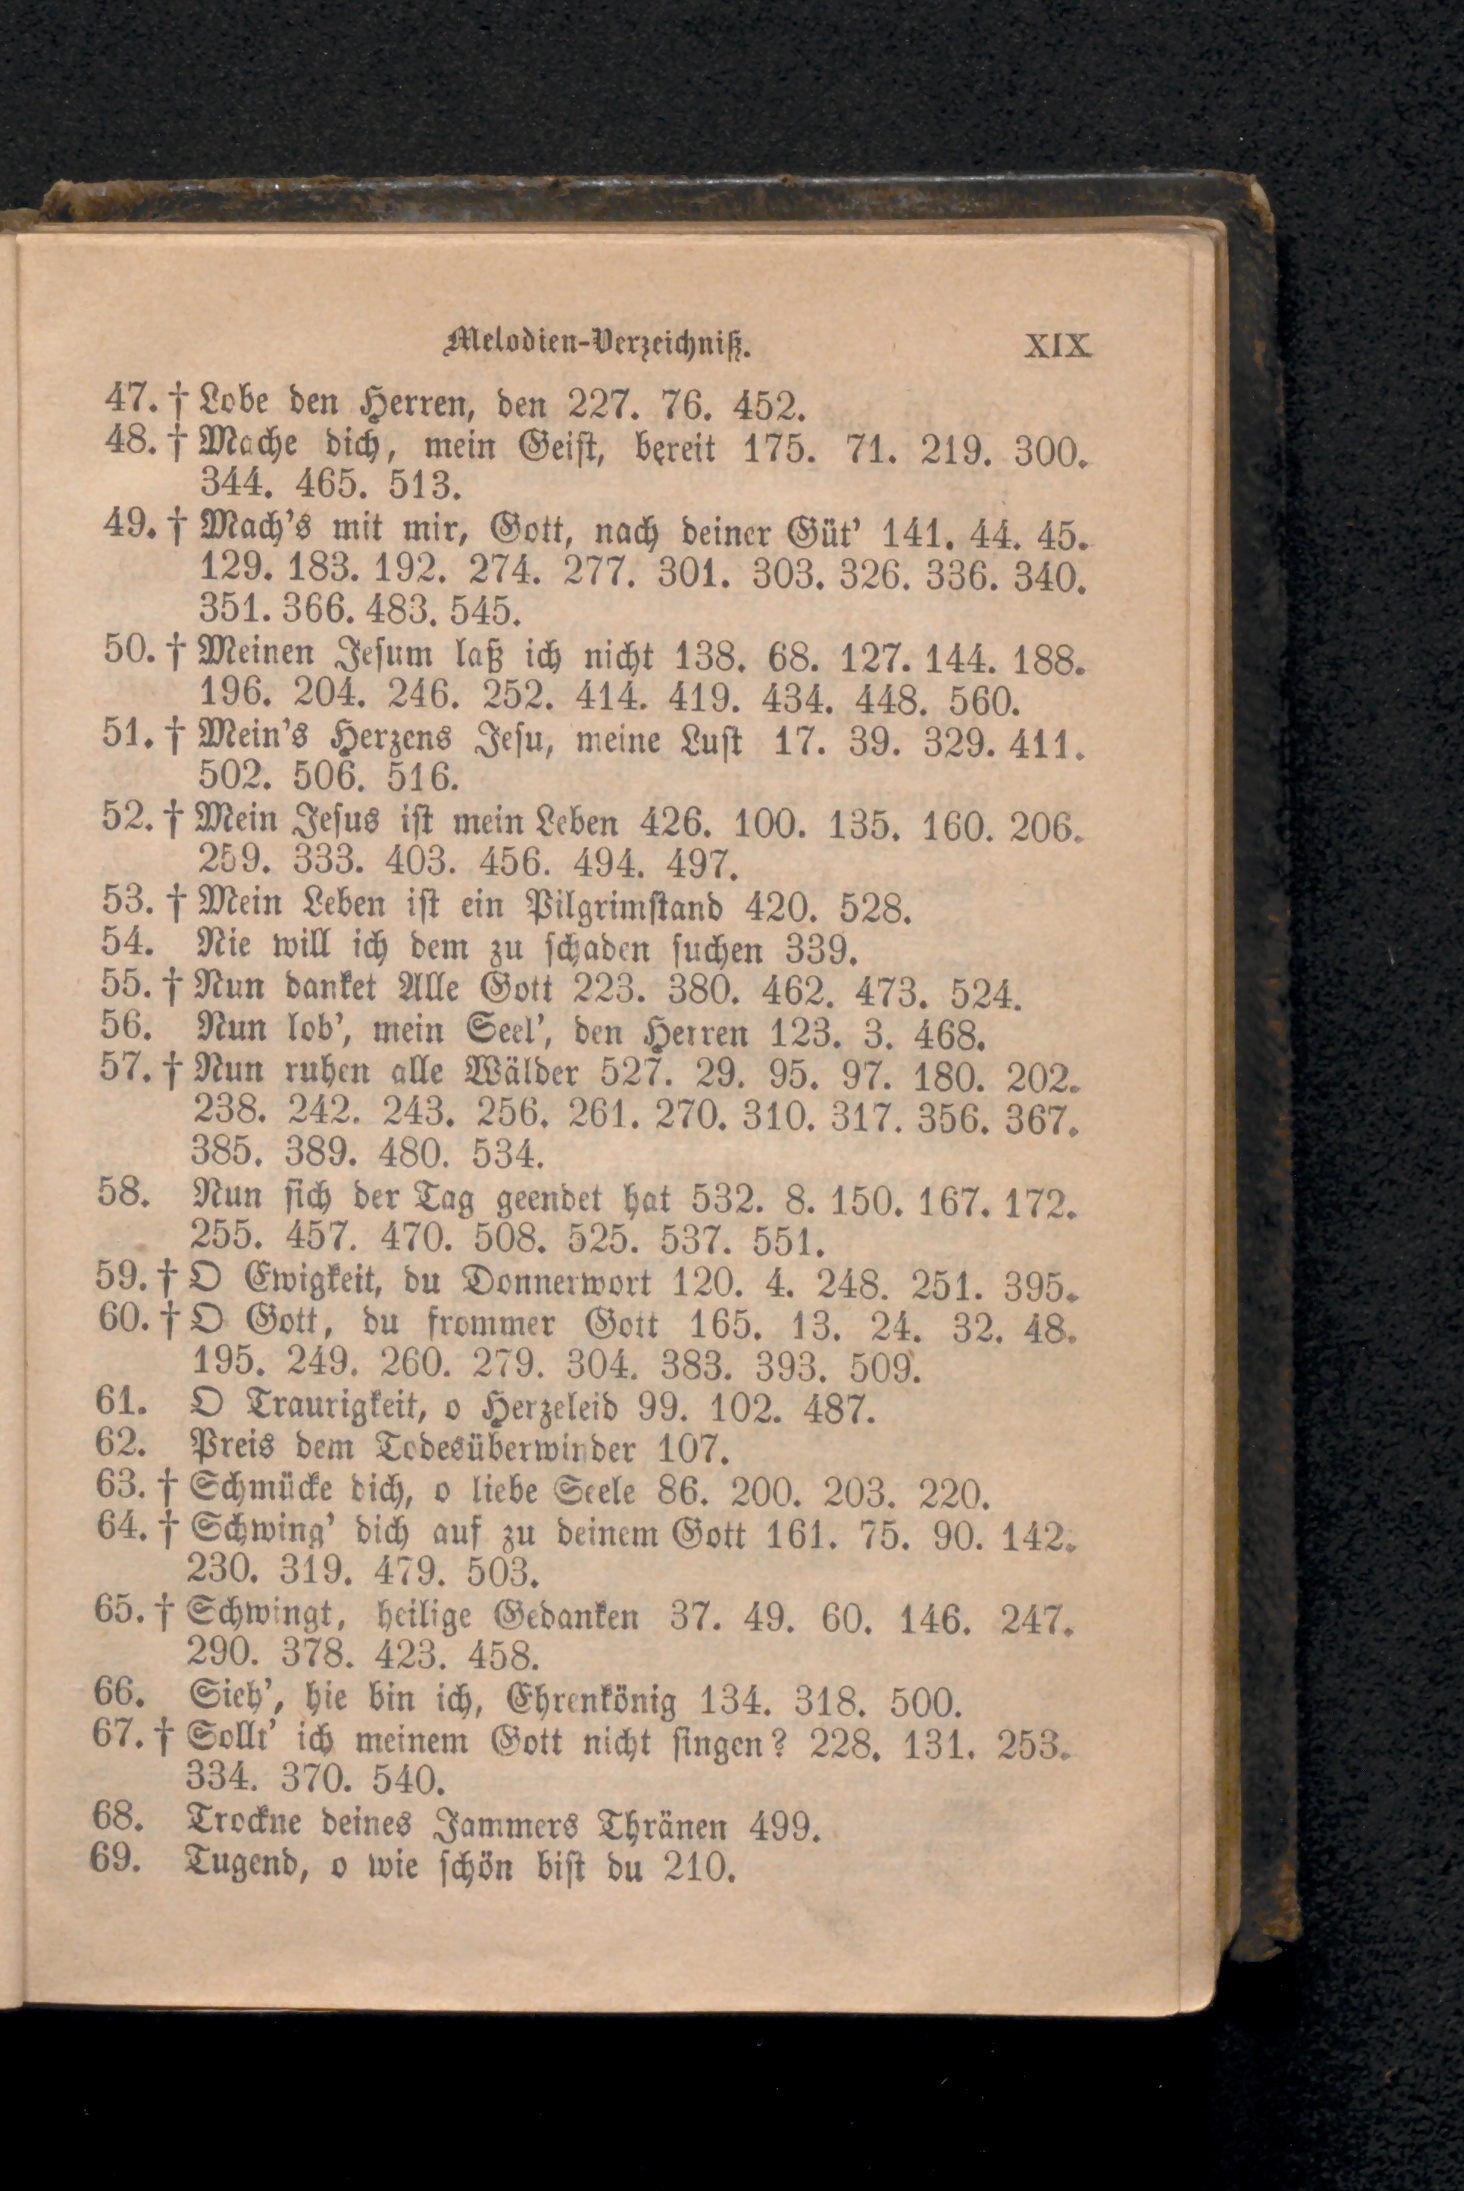 Melodien-Verzeichniß. XIX
47. † Lobe den Herren, den 227. 76. 452.
48. † Mache dich, mein Geist, bereit 175. 71. 219. 300.
344. 465. 513.
49. † Mach's mit mir, Gott, nach deiner Güt' 141. 44. 45.
129. 183. 192. 274. 277. 301. 303. 326. 336. 340.
351. 366. 483. 545.
50. † Meinen Jesum laß ich nicht 138. 68. 127. 144. 188.
196. 204. 246. 252. 414. 419. 434. 448. 560.
51. † Mein's Herzens Jesu, meine Lust 17. 39. 329. 411.
502. 506. 516.
52. † Mein Jesus ist mein Leben 426. 100. 135. 160. 206.
259. 333. 403. 456. 494. 497.
53. † Mein Leben ist ein Pilgrimstand 420. 528.
54. Nie will ich dem zu schaden suchen 339.
55. † Nun danket Alle Gott 223. 380. 462. 473. 524.
56. Nun lob', mein Seel', den Herren 123. 3. 468.
57. † Nun ruhen alle Wälder 527. 29. 95. 97. 180. 202.
238. 242. 243. 256. 261. 270. 310. 317. 356. 367.
385. 389. 480. 534.
58. Nun sich der Tag geendet hat 532. 8. 150. 167. 172.
255. 457. 470. 508. 525. 537. 551.
59. † O Ewigkeit, du Donnerwort 120. 4. 248. 251. 395.
60. † O Gott, du frommer Gott 165. 13. 24. 32. 48.
195. 249. 260. 279. 304. 383. 393. 509.
61. O Traurigkeit, o Herzeleid 99. 102. 487.
62. Preis dem Todesüberwinder 107.
63. † Schmücke dich, o liebe Seele 86. 200. 203. 220.
64. † Schwing' dich auf zu deinem Gott 161. 75. 90. 142.
230. 319. 479. 503.
65. † Schwingt, heilige Gedanken 37. 49. 60. 146. 247.
290. 378. 423. 458.
66. Sieh', hie bin ich, Ehrenkönig 134. 318. 500.
67. † Sollt' ich meinem Gott nicht singen? 228. 131. 253.
334. 370. 540.
68. Trockne deines Jammers Thränen 499.
69. Tugend, o wie schön bist du 210.